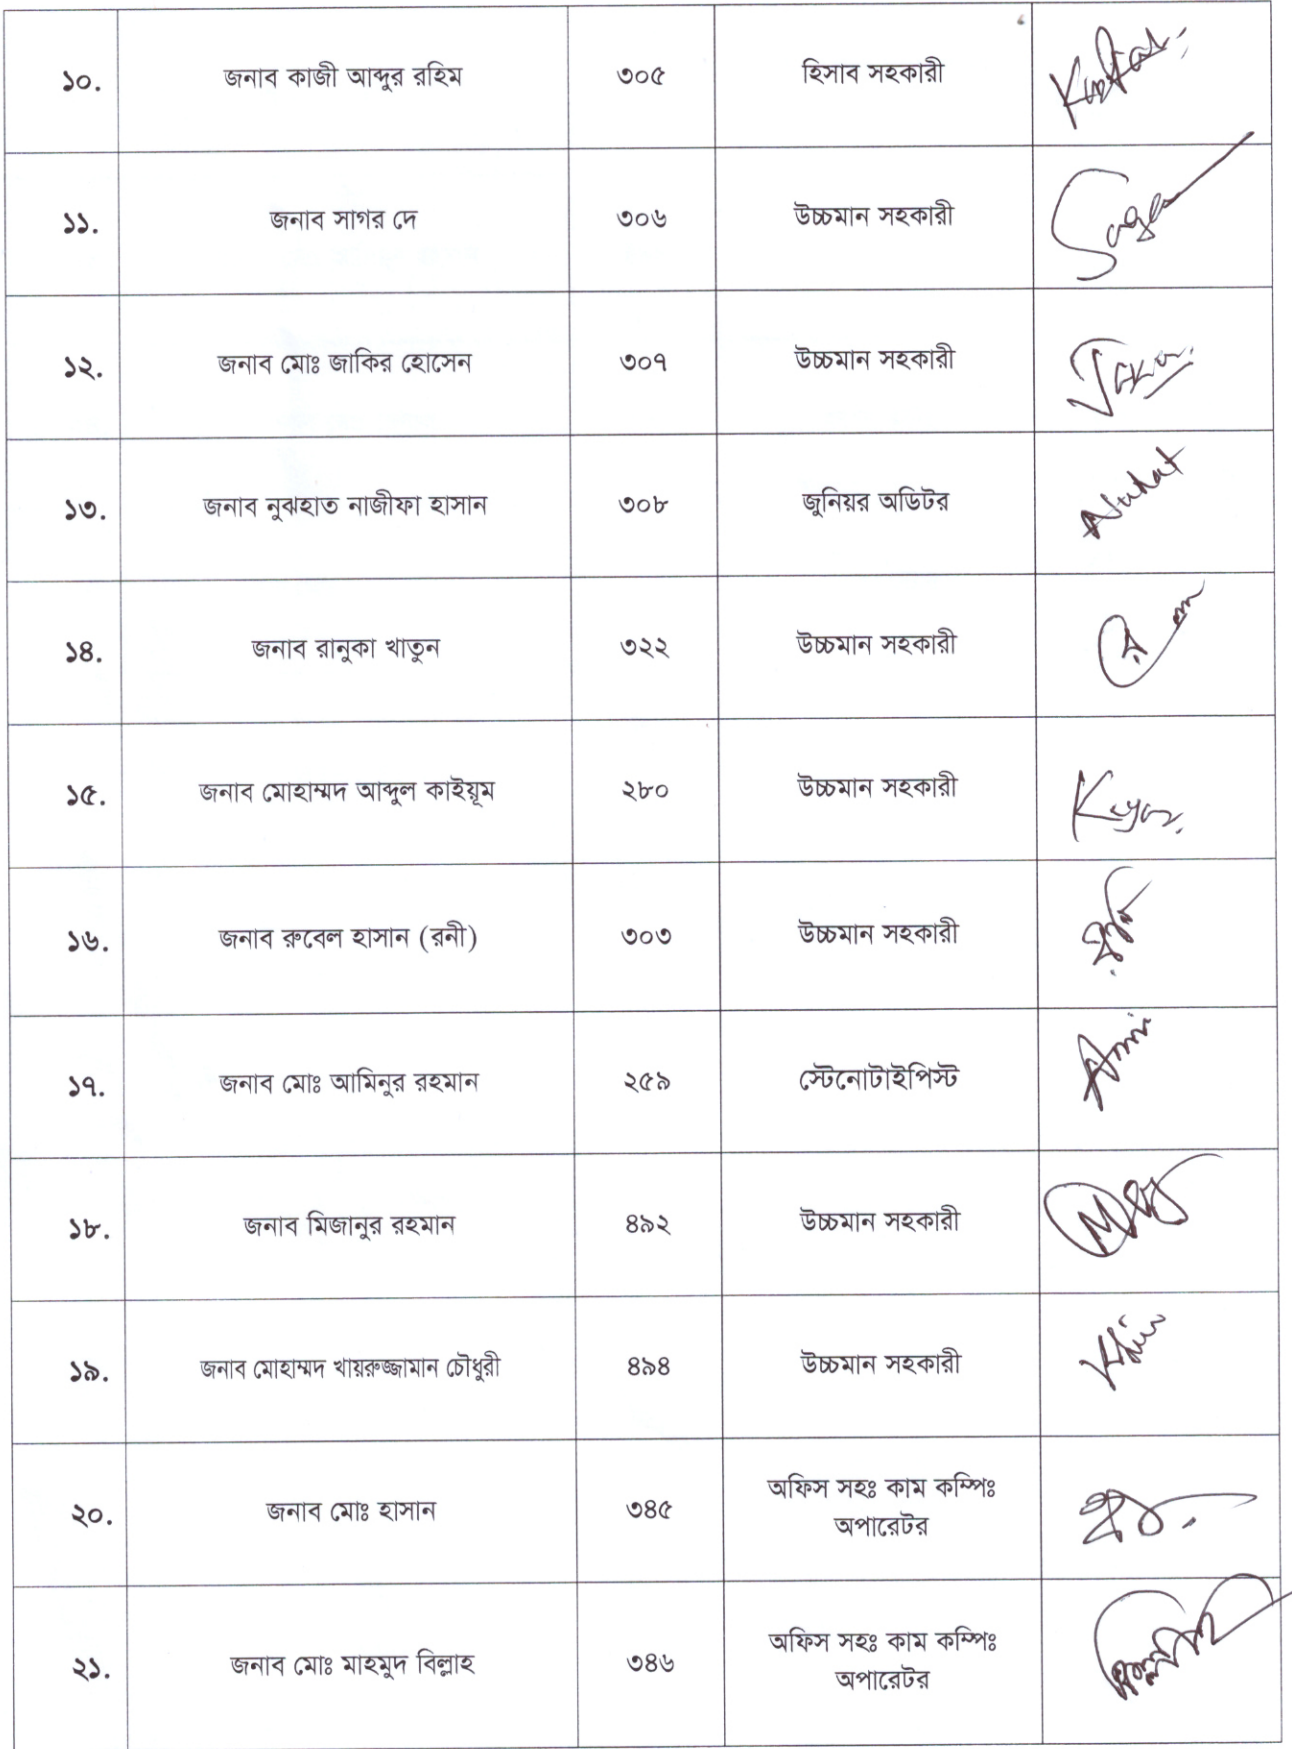 ১০. জনাব কাজী আব্দুর রহিম ৩০৫ হিসাব সহকারী
১১. জনাব সাগর দে ৩০৬ উচ্চমান সহকারী Sagar
১২. জনাব মোঃ জাকির হোসেন ৩০৭ উচ্চমান সহকারী
১৩. জনাব নুঝহাত নাজীফা হাসান ৩০৮ জুনিয়র অডিটর Nuhat
১৪. জনাব রানুকা খাতুন ৩২২ উচ্চমান সহকারী
১৫. জনাব মোহাম্মদ আব্দুল কাইয়ূম ২৮০ উচ্চমান সহকারী
১৬. জনাব রুবেল হাসান (রনী) ৩০৩ উচ্চমান সহকারী
১৭. জনাব মোঃ আমিনুর রহমান ২৫৯ স্টেনোটাইপিস্ট
১৮. জনাব মিজানুর রহমান ৪৯২ উচ্চমান সহকারী
১৯. জনাব মোহাম্মদ খায়রুজ্জামান চৌধুরী ৪৯৪ উচ্চমান সহকারী
২০. জনাব মোঃ হাসান ৩৪৫ অফিস সহঃ কাম কম্পিঃ
অপারেটর
২১. জনাব মোঃ মাহমুদ বিল্লাহ ৩৪৬ অফিস সহঃ কাম কম্পিঃ
অপারেটর